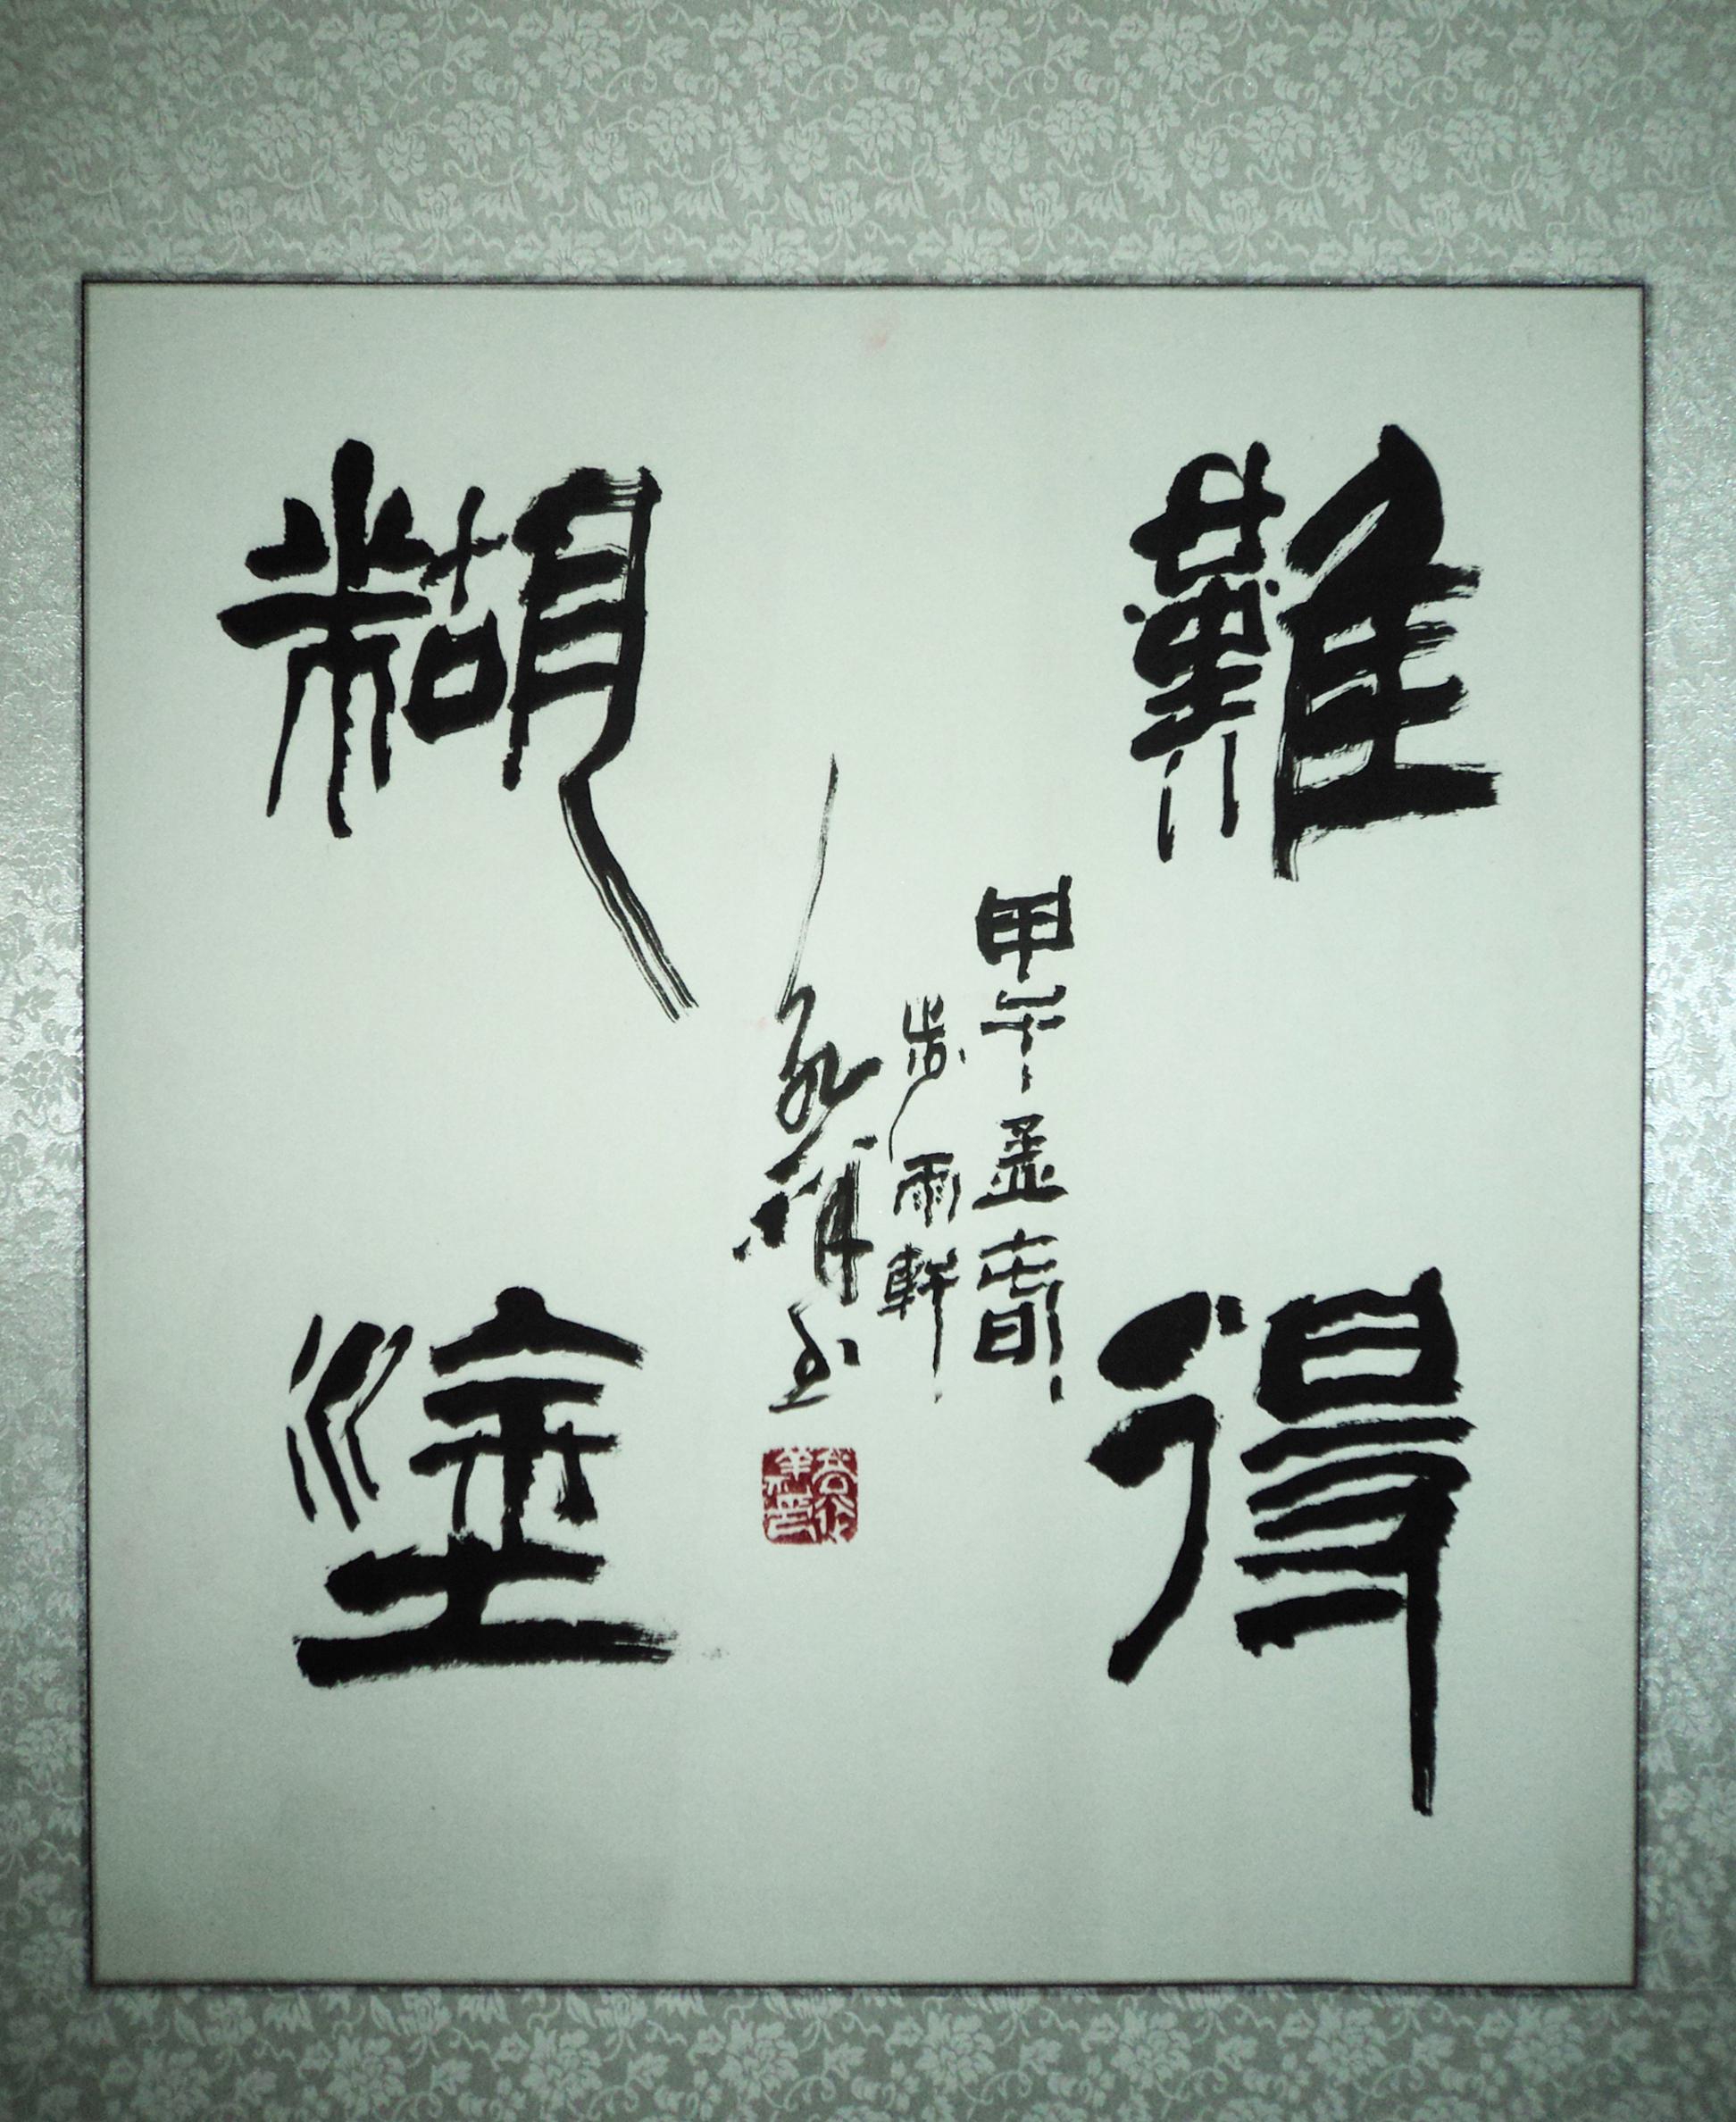 難得
糊塗
甲午孟春
步雨軒
永祥书